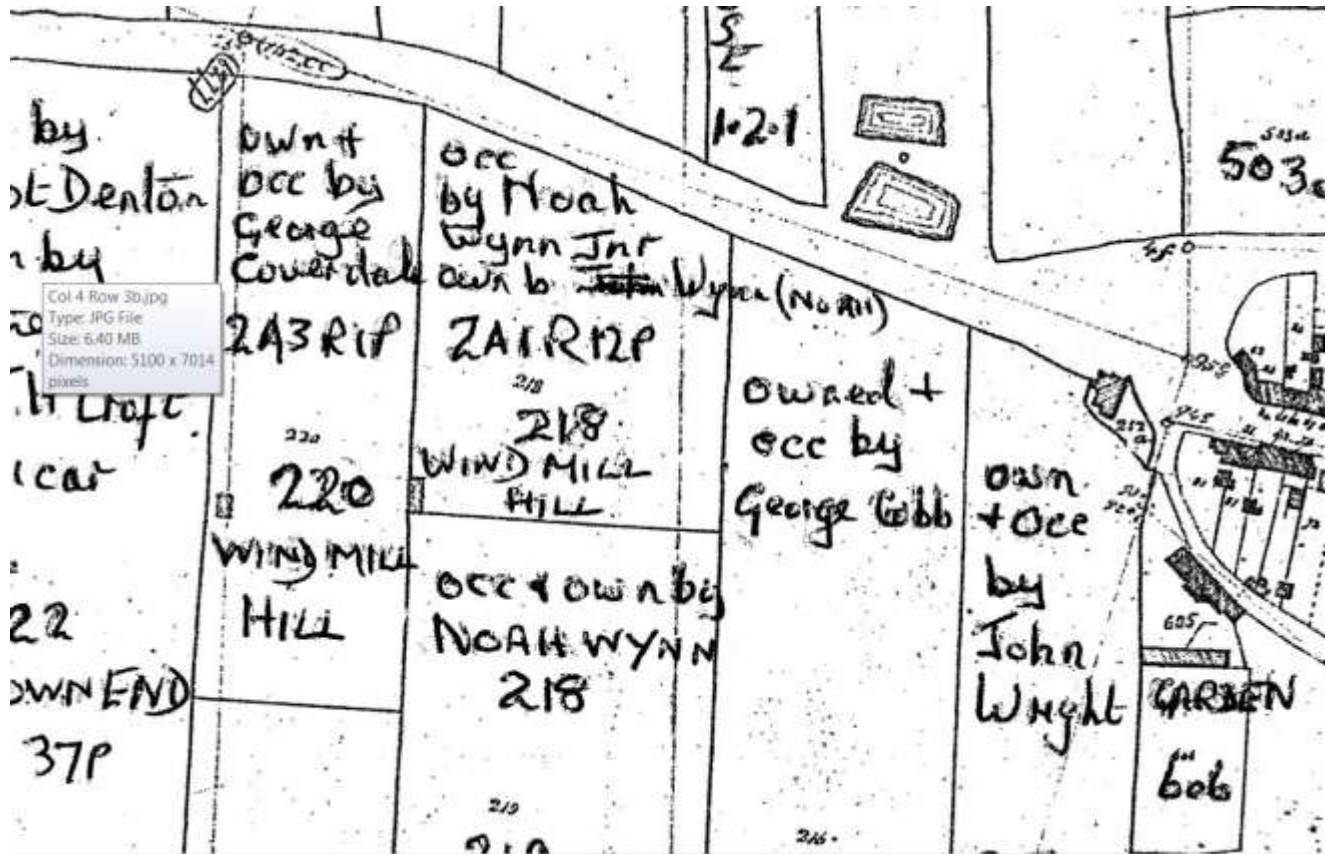 by
ot Denton
n by
Croft
icar
22
OWN END
37P
Col 4 Row 3b.jpg
Type: JPG File
Size: 6.40 MB
Dimension: 5100 x 7014
pixels
own +
occ by
George
Coverdale
2A3R1P
220
220
WIND MILL
HILL
occ
by Noah
Wynn Jnr
own b John Wynn (NOAH)
2A1R12P
218
218
WIND MILL
HILL
occ & own by
NOAH WYNN
218
219
219
S
E
1.2.1
owned +
occ by
George Cobb
216
own
+ Occ
by
John
Wright
212
a
605
GARDEN
606
503a
503